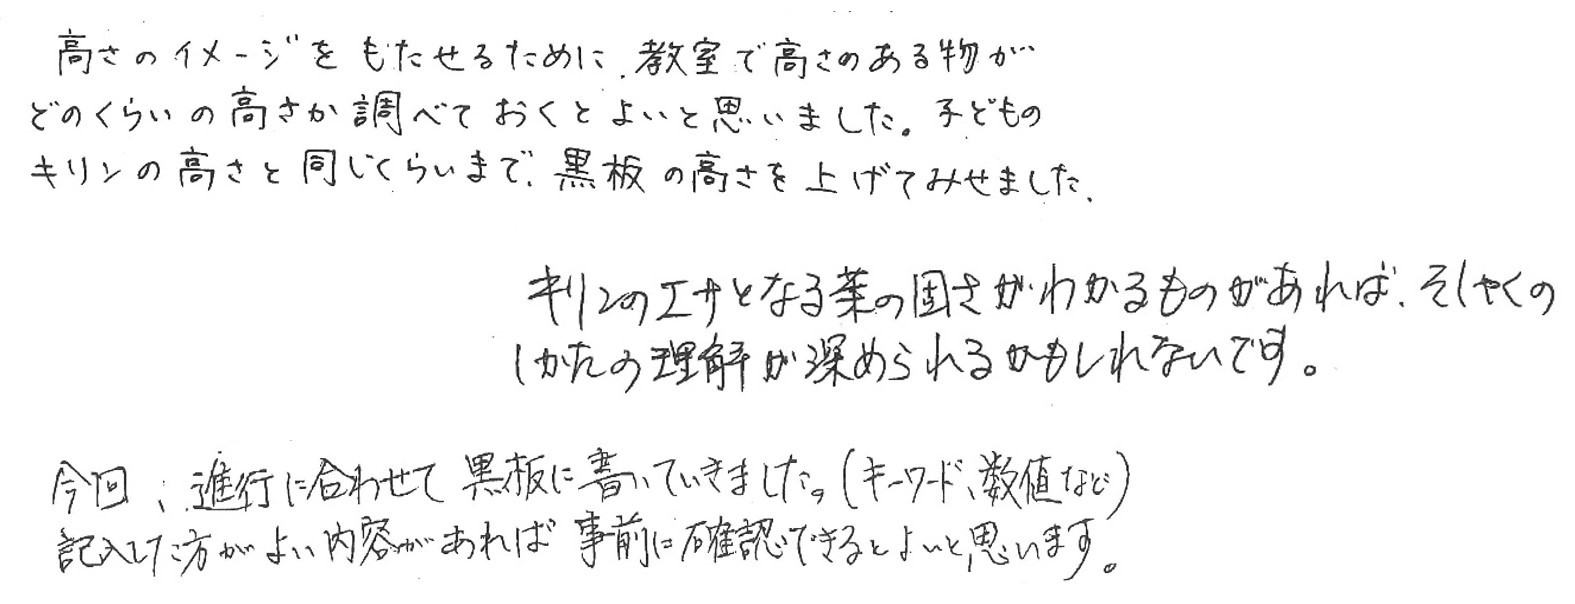 高さのイメージをもたせるために、教室で高さのある物が
どのくらいの高さか調べておくとよいと思いました。子どもの
キリンの高さと同じくらいまで、黒板の高さを上げてみせました。
キリンのエサとなる葉の固さがわかるものがあれば、そしゃくの
しかたの理解が深められるかもしれないです。
今回、進行に合わせて黒板に書いていきました。(キーワード、数値など)
記入した方がよい内容があれば事前に確認できるとよいと思います。